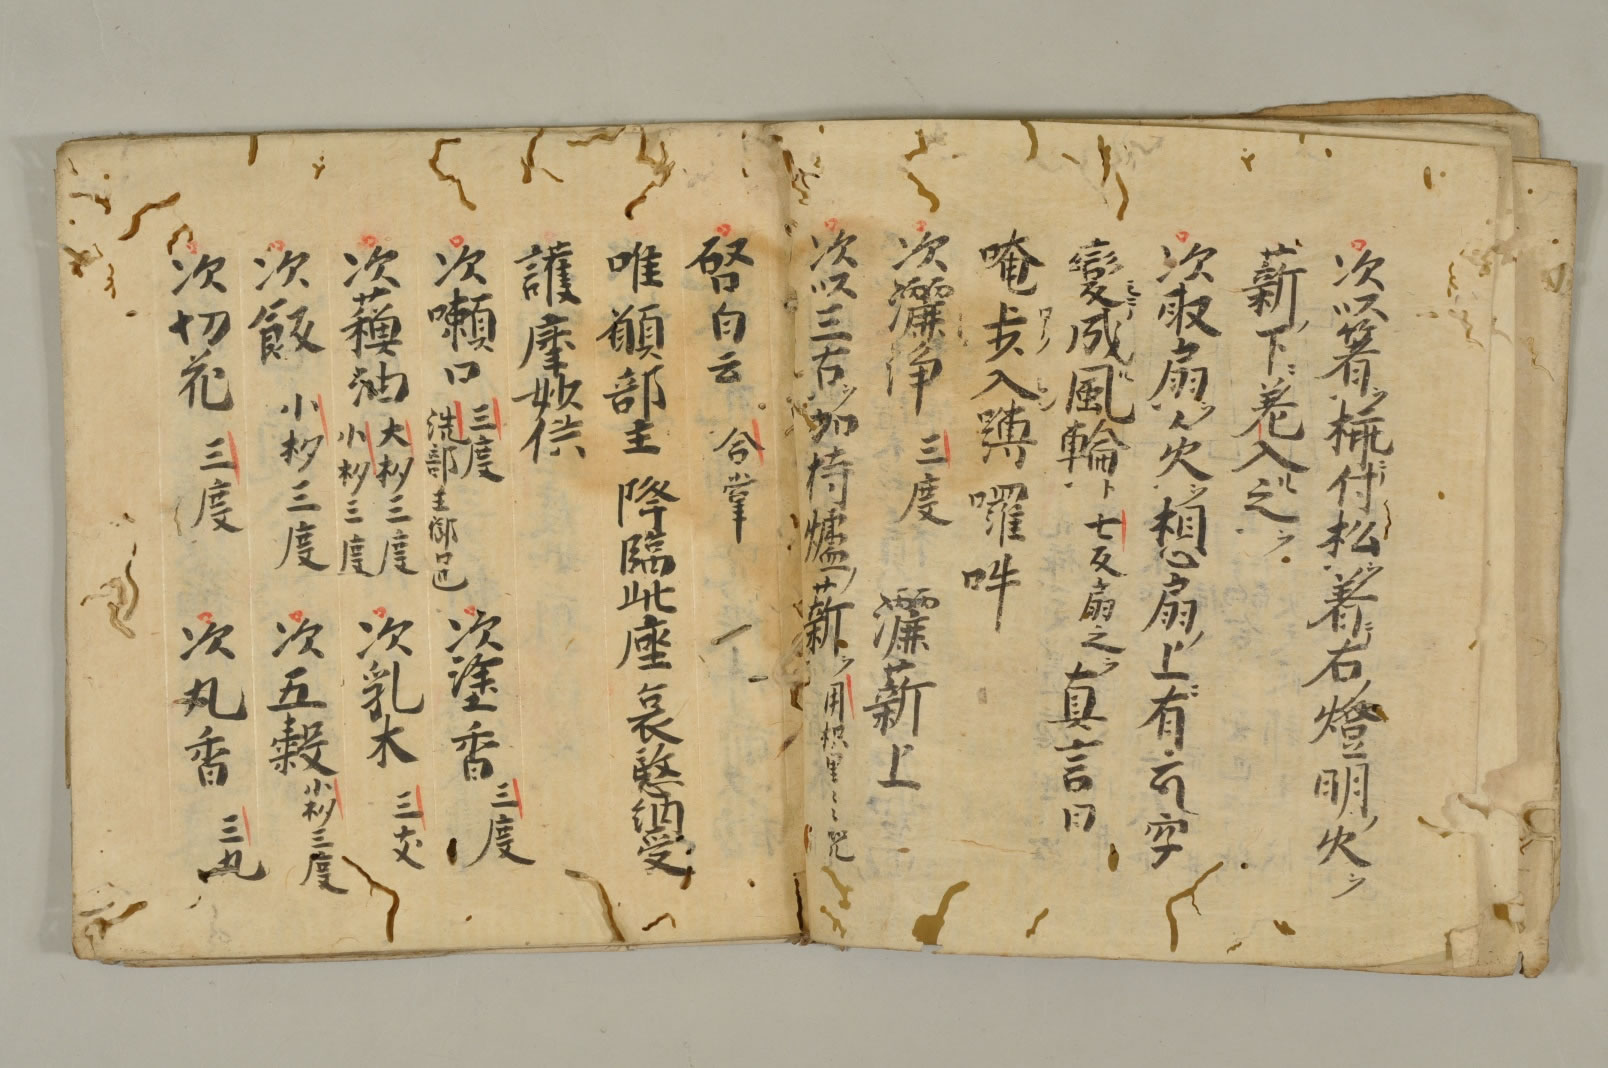 次以箸ヲ挾付松ヲ着右ノ燈明ノ火ヲ
薪ノ下ニ差入之ヲ
次取扇ヲ
火ヲ想ヘ扇ノ上ニ有𑖮字
變成風輪ト 七反扇之ヲ 真言曰
唵歩入嚩囉吽
次灑浄 三度 灑薪上
次以三古ヲ加持爐ノ薪ヲ 用枳里〻〻咒
啓白云 合掌
唯願部主 降臨此座 哀愍納受
護摩妙供
次嗽口 三度 洗部主御口也 次塗香 三度
次蘓油 大杓三度 小杓三度 次乳木 三支
次飯 小杓三度 次五穀 小杓三度
次切花 三度 次丸香 三丸